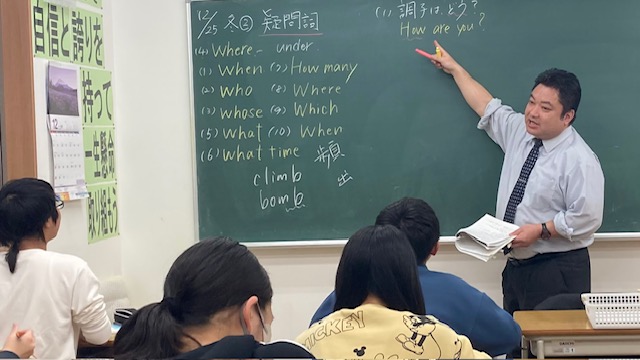 自信と誇りを
持って
一生懸命
取り組もう
12
12/25 冬② 疑問詞
(1) 調子はどう?
How are you?
(4) Where - under
(1) When (7) How many
(2) who (8) Where
(3) whose (9) Which
(5) what (10) When
(6) what time 頻出
climb
bomb
MICKEY